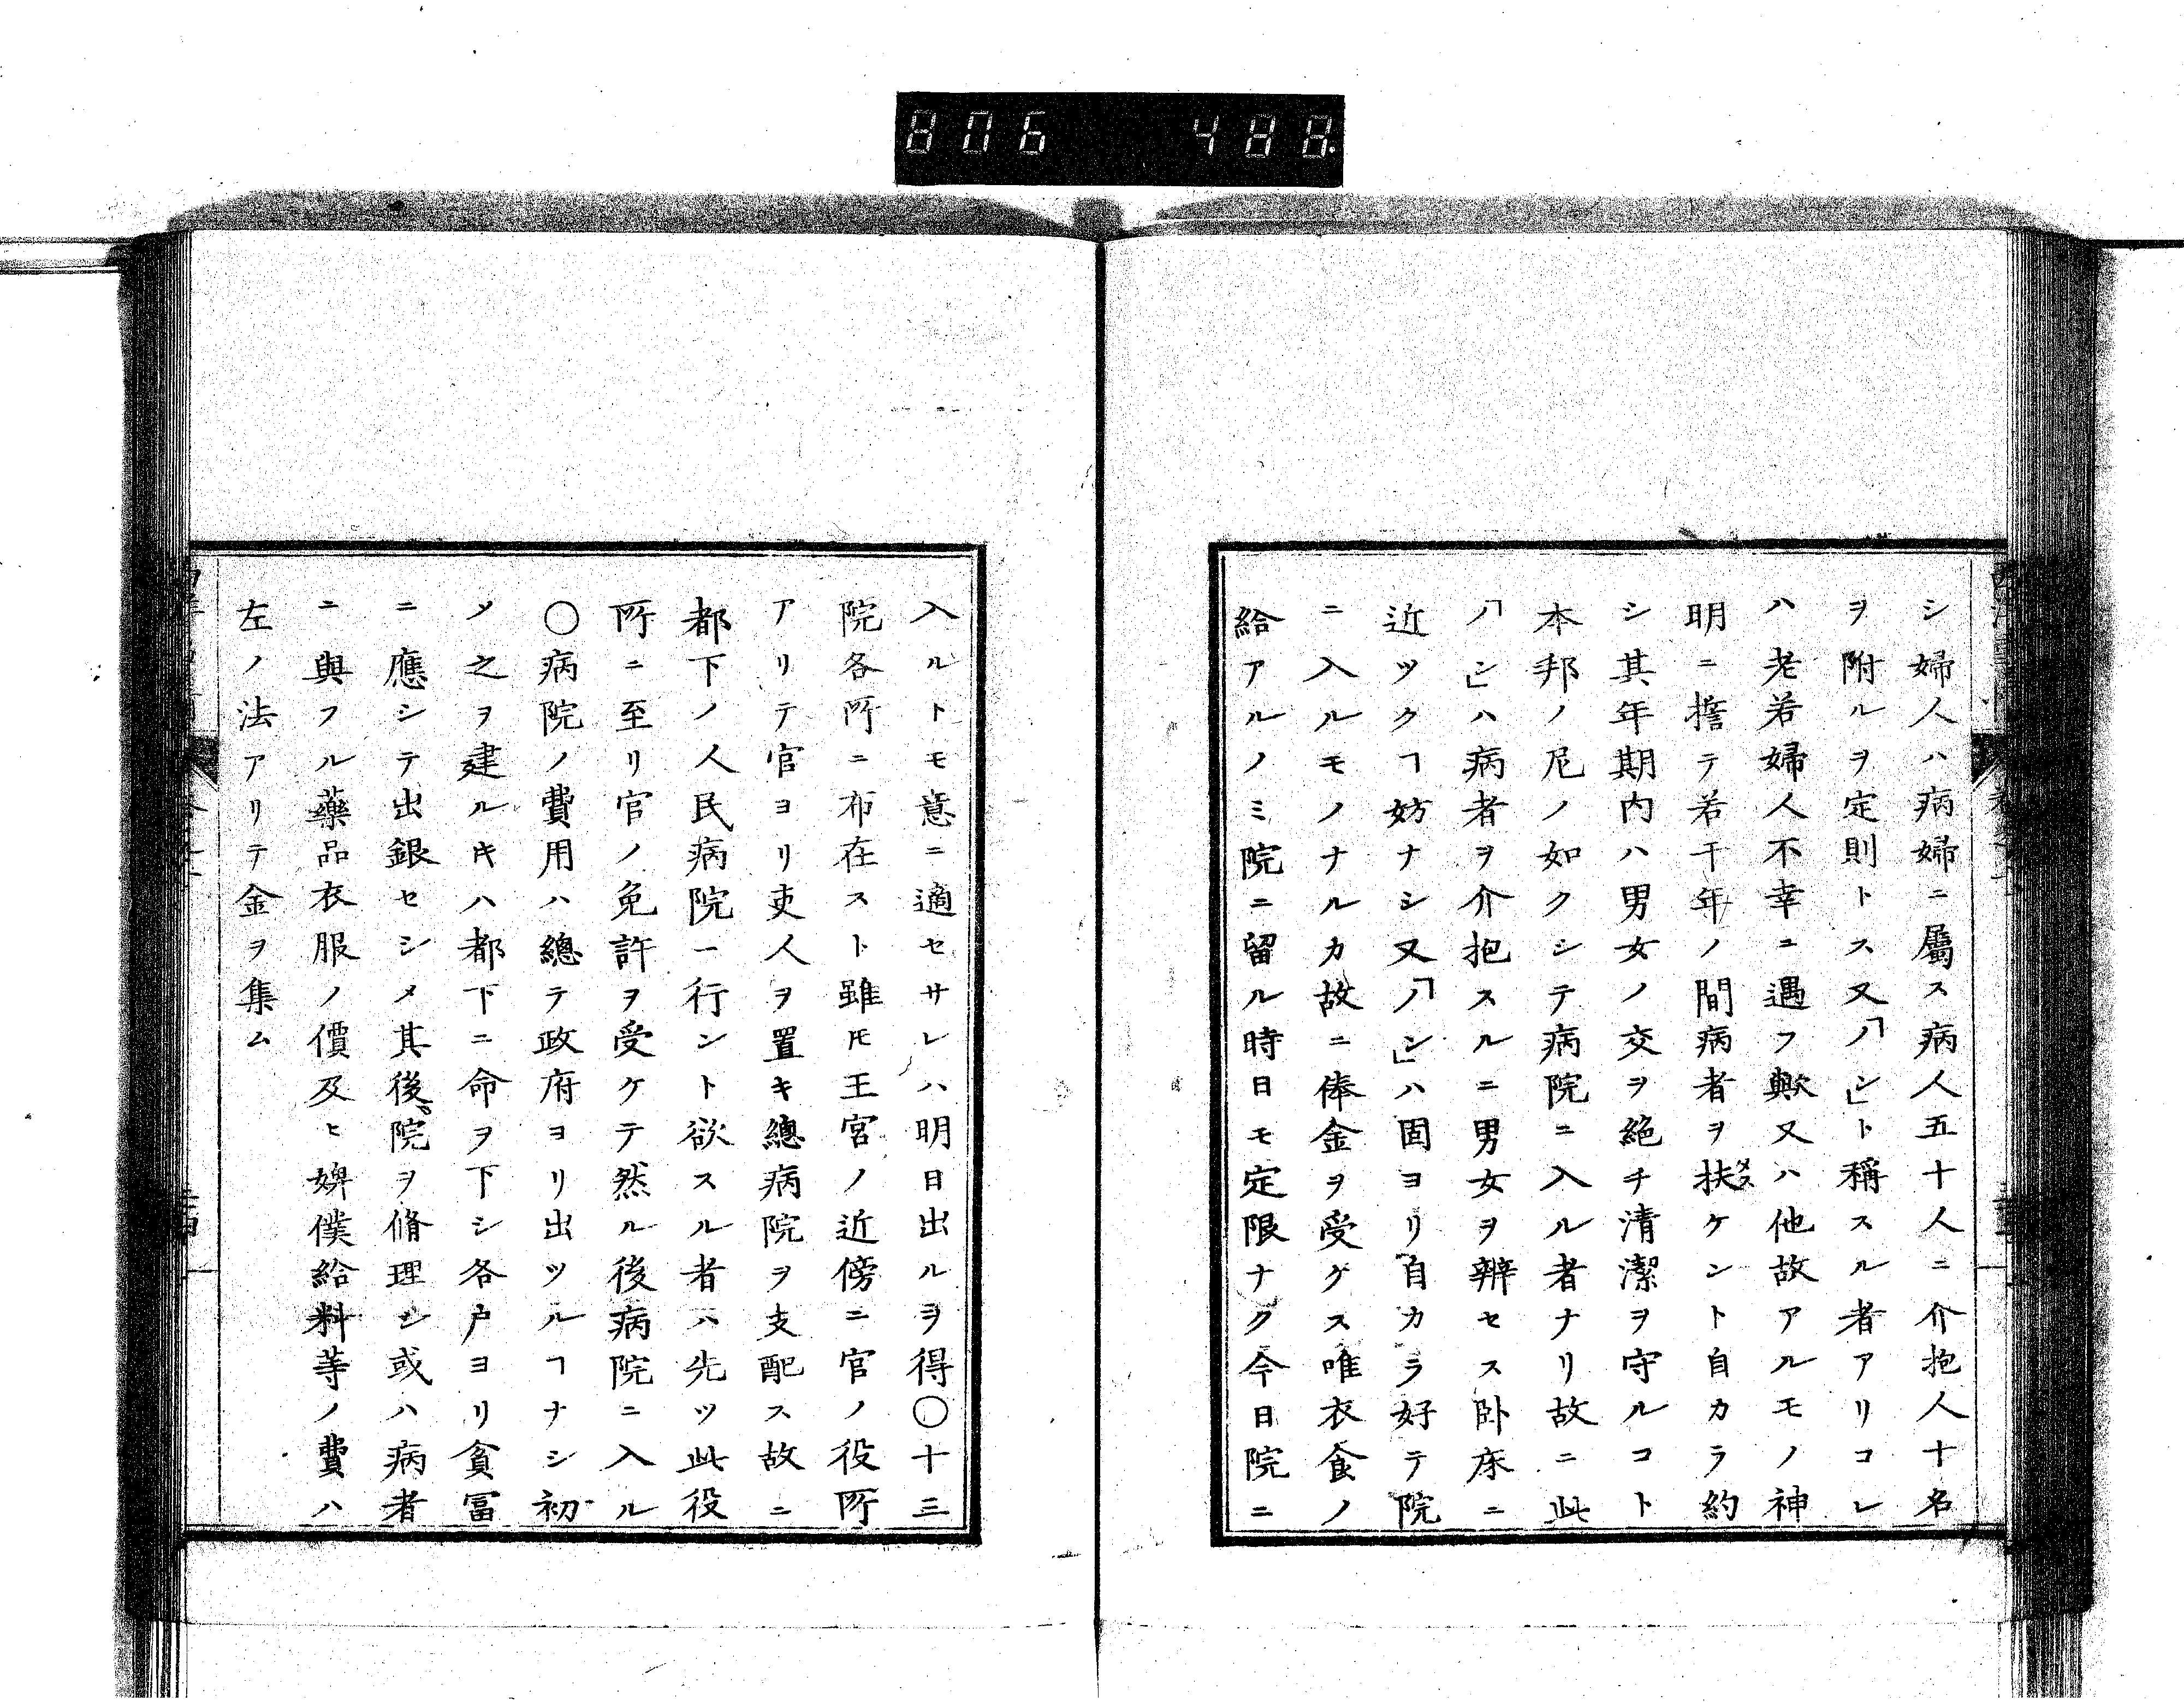 806 488
シ婦人ハ病婦ニ屬ス病人五十人ニ介抱人十名
ヲ附ルヲ定則トス又「ノン」ト稱スル者アリコレ
ハ老若婦人不幸ニ遇フ歟又ハ他故アルモノ神
明ニ擔テ若干年ノ間病者ヲ扶ケント自カラ約
シ其年期内ハ男女ノ交ヲ絶チ清潔ヲ守ルコト
本邦ノ尼ノ如クシテ病院ニ入ル者ナリ故ニ此
「ノン」ハ病者ヲ介抱スルニ男女ヲ辨セス卧床ニ
近ツクヿ妨ナシ又「ノン」ハ固ヨリ自カラ好テ院
ニ入ルモノナルカ故ニ俸金ヲ受ケス唯衣食ノ
給アルノミ院ニ留ル時日モ定限ナク今日院ニ
入ルトモ意ニ適セサレハ明日出ルヲ得〇十三
院各所ニ布在スト雖𪜈王宮ノ近傍ニ官ノ役所
アリテ官ヨリ吏人ヲ置キ總病院ヲ支配ス故ニ
都下ノ人民病院ニ行ント欲スル者ハ先ツ此役
所ニ至リ官ノ免許ヲ受ケテ然ル後病院ニ入ル
〇病院ノ費用ハ總テ政府ヨリ出ツルヿナシ初
メ之ヲ建ルキハ都下ニ命ヲ下シ各戸ヨリ貪冨
ニ應シテ出銀セシメ其後院ヲ脩理シ或ハ病者
ニ與フル藥品衣服ノ價及ヒ婢僕給料等ノ費ハ
左ノ法アリテ金ヲ集ム